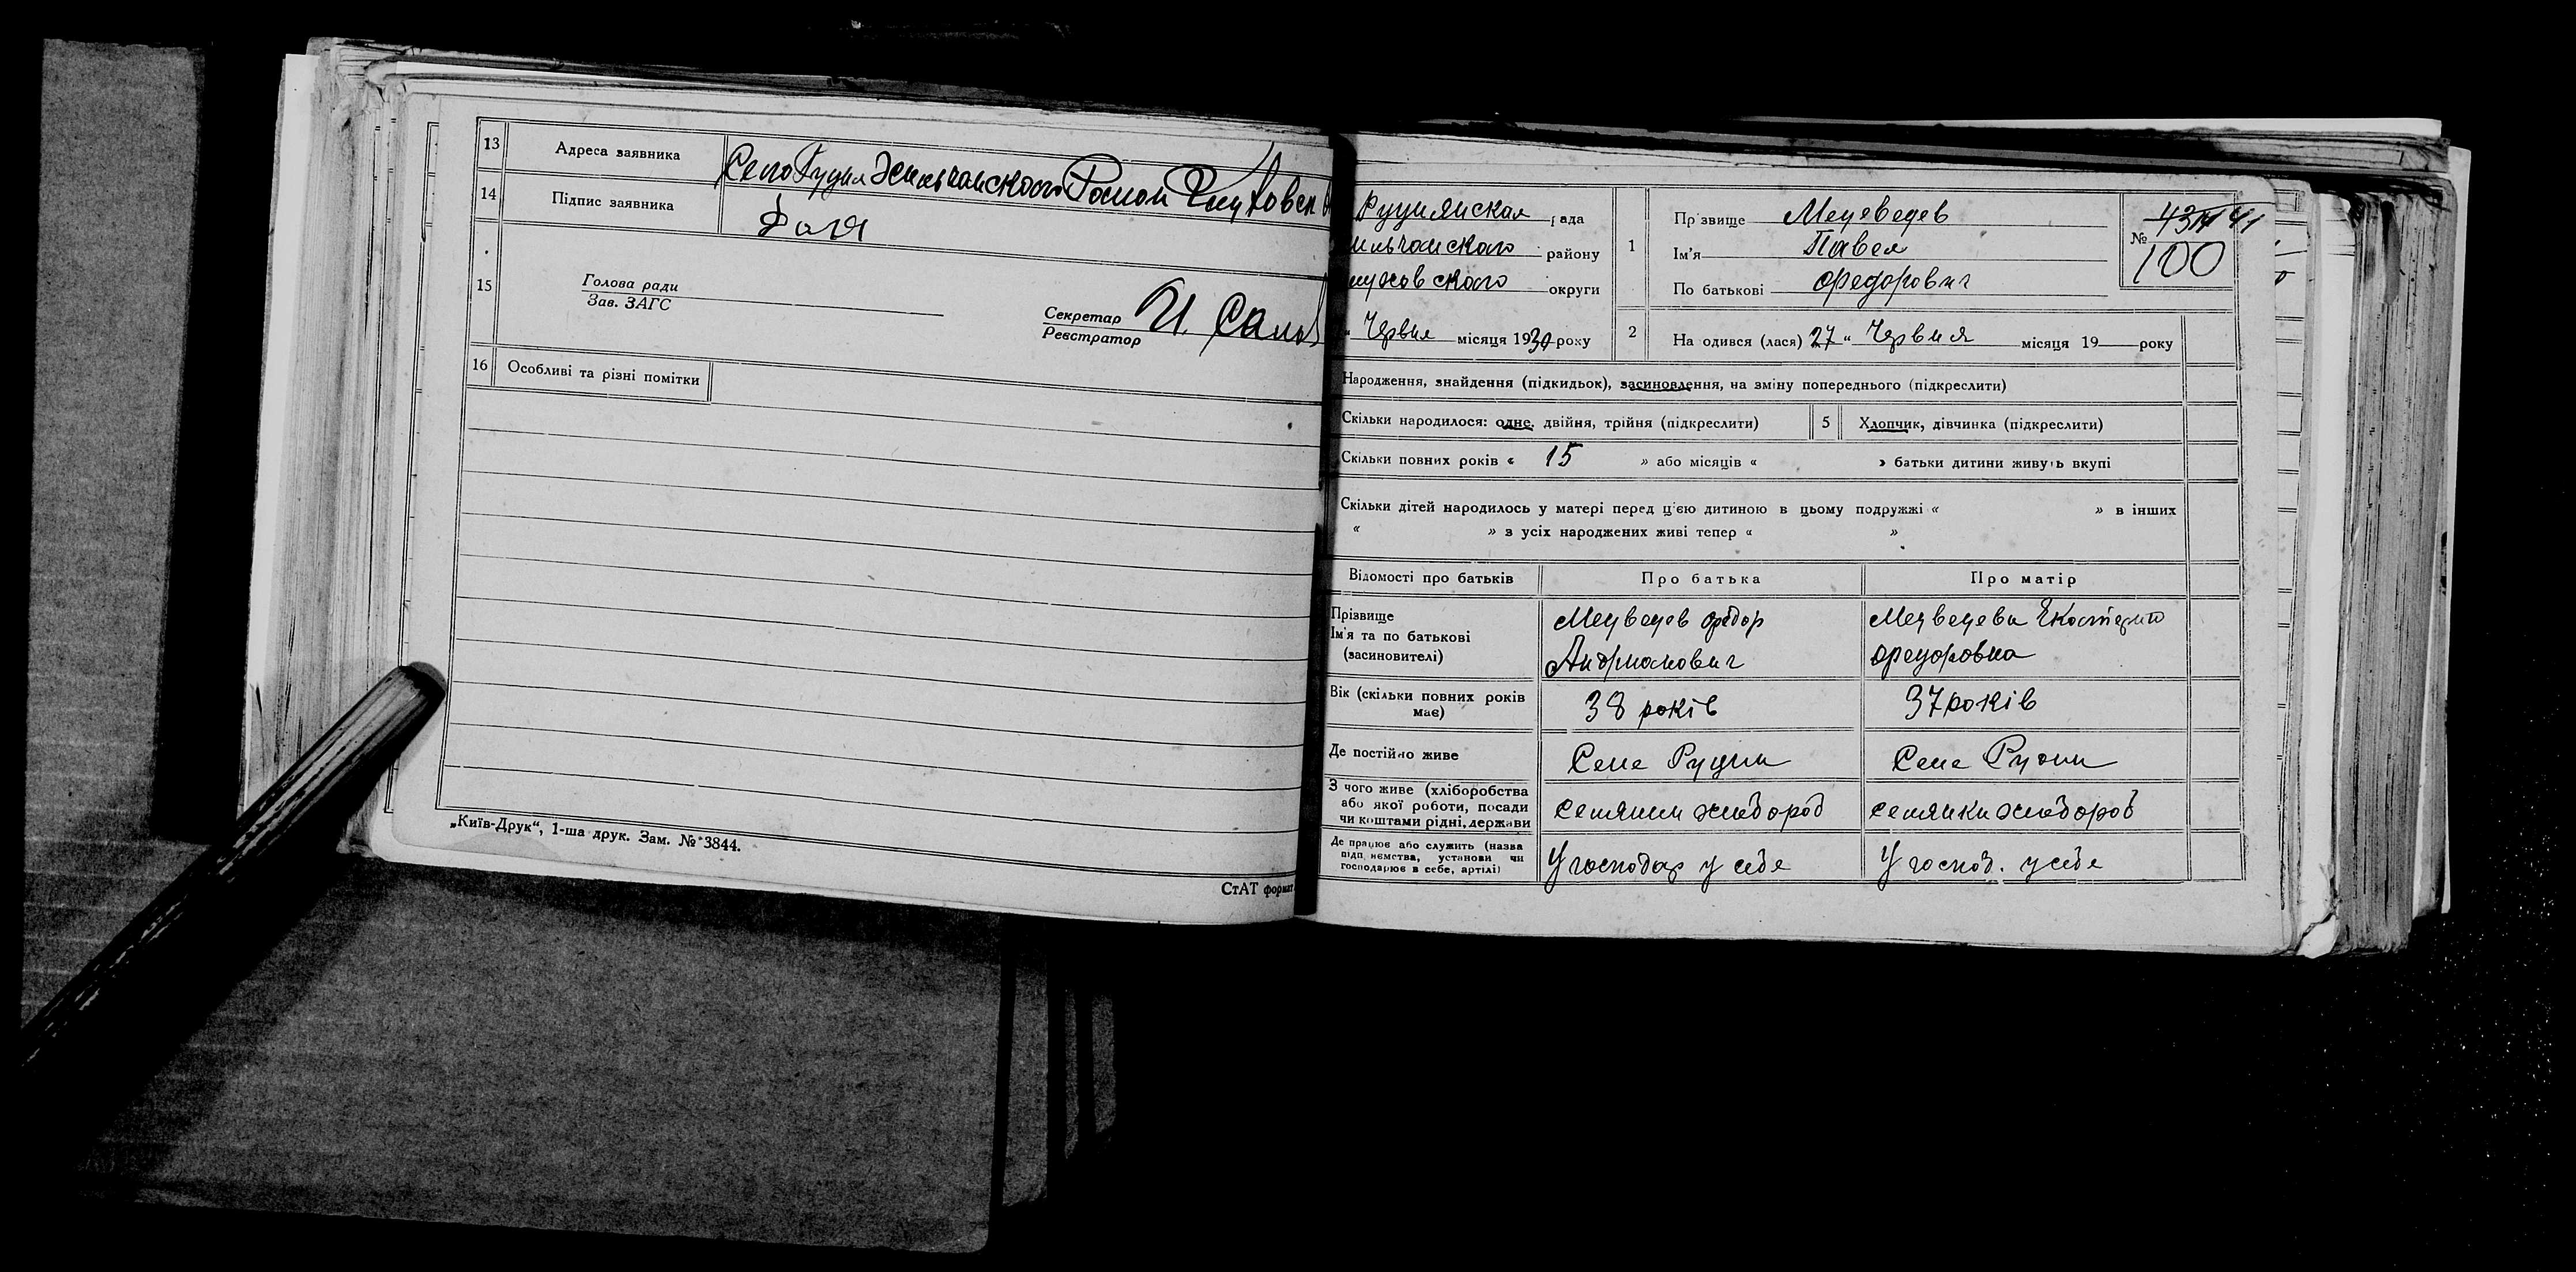 13 Адреса заявника Село Рудня
14 Підпис заявника
15 Голова ради
Зав. ЗАГС
Секретар И.
Реєстратор
16 Особливі та різні помітки
„Київ-Друк“, 1-ша друк. Зам. № 3844.
СтАТ формат
Руднянская рада
району
округи
Червня місяця 1930 року
1 Прізвище Медведев
Ім'я Павел
По батькові Федорович
№ 100
2 На одився (лася) 27 “ Червня місяця 19 року
Народження, знайдення (підкидьок), засиновлення, на зміну попереднього (підкреслити)
Скільки народилося: одне, двійня, трійня (підкреслити) 5 Хлопчик, дівчинка (підкреслити)
Скільки повних років « 15 » або місяців « » батьки дитини живуть вкупі
Скільки дітей народилось у матері перед ц'єю дитиною в цьому подружжі « » в інших
« » з усіх народжених живі тепер « »
Відомості про батьків Про батька Про матір
Прізвище
Ім'я та по батькові
(засиновителі)
Медведев Федор
Андрианович
Медведева
Федоровна
Вік (скільки повних років
має)
38 років 37 років
Де постійно живе Селе Рудни Селе Рудни
З чого живе (хліборобства
або якої роботи, посади
чи коштами рідні, держави
Де працює або служить (назва
підп, немства, установи чи
господарює в себе, артілі)
У господар у себе У господ. у себе